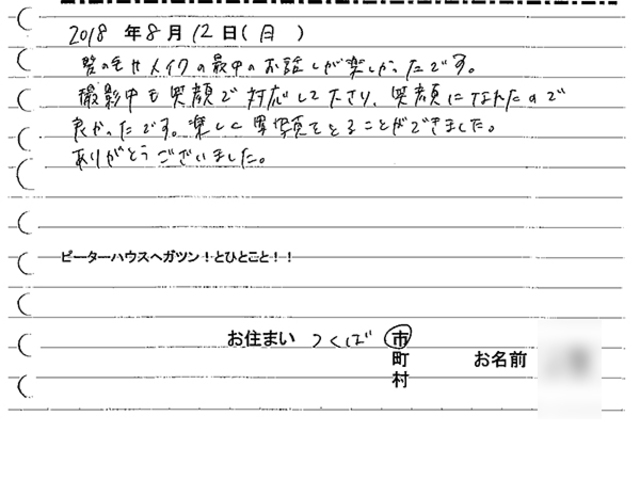 2018 年 8 月 12 日 ( 日 )
髪の毛やメイクの最中のお話しが楽しかったです。
撮影中も笑顔で対応して下さり、笑顔になれたので
良かったです。楽しく写真をとることができました。
ありがとうございました。
ピーターハウスへガツン!とひとこと!!
お住まい つくば 市
町
村
お名前